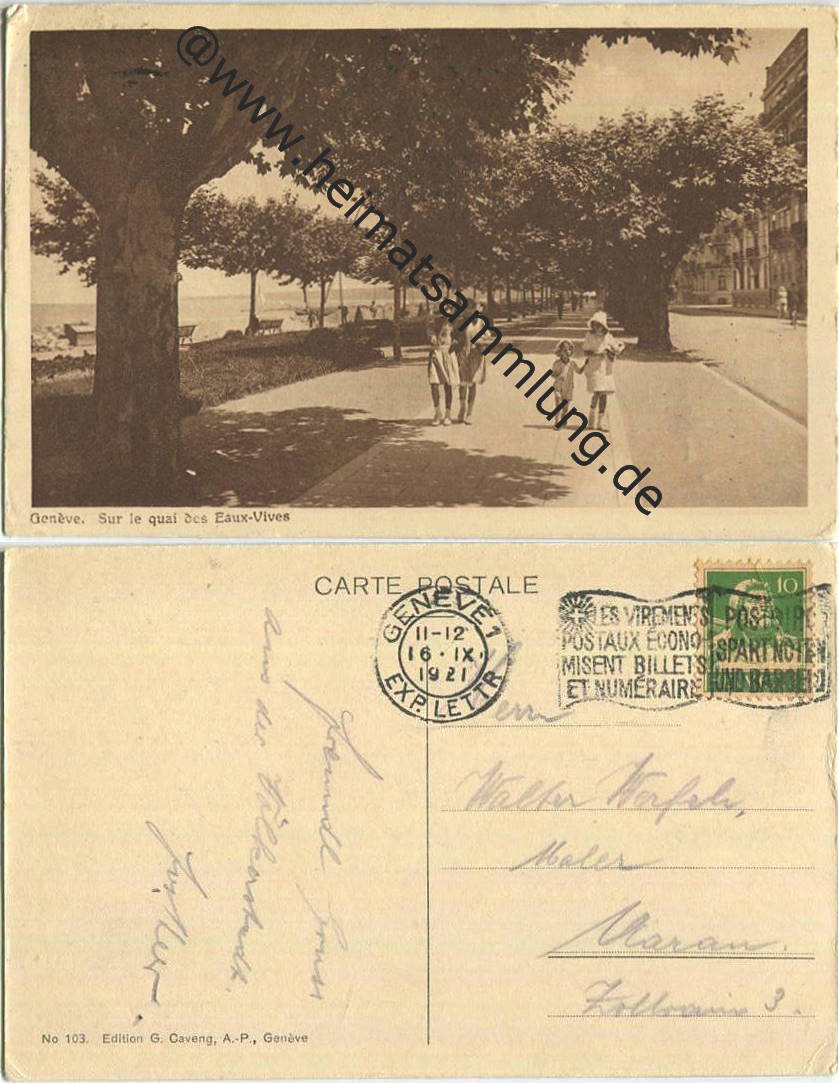 @www.heimatsammlung.de
Genève. Sur le quai des Eaux-Vives
CARTE POSTALE
GENÈVE 1
11-12
16·IX·
1921
EXP. LETTR
LES VIREMENTS
POSTAUX ÉCONO-
MISENT BILLETS
ET NUMÉRAIRE
POSTGIRO
SPART NOTEN
UND BARGELD
10
Freundl. Gruss
aus der Völkerstadt.
Herrn
Walter
Maler
Aarau.
3.
No 103. Edition G. Caveng, A.-P., Genève